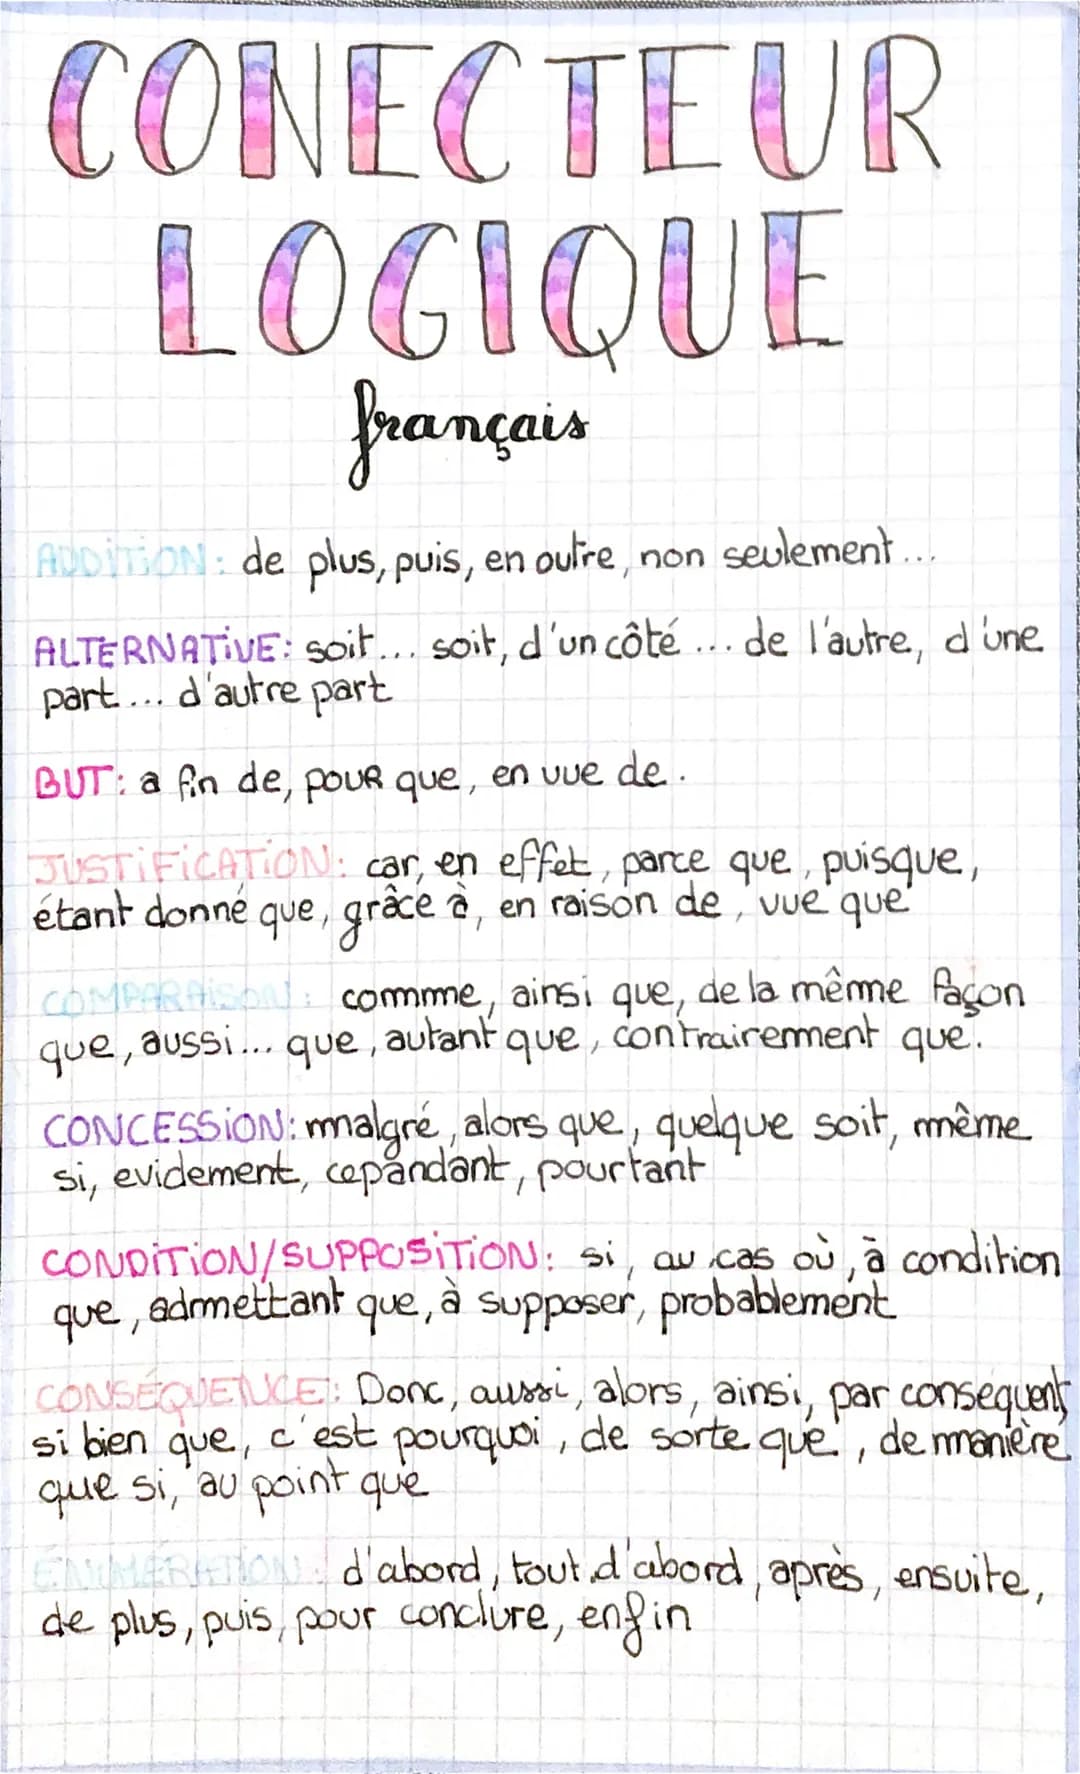 CONECTEUR
LOGIQUE
français
ADDITION: de plus, puis, en outre, non seulement...
ALTERNATIVE: soit... soit, d'un côté ... de l'autre, d'une
part... d'autre part
BUT: a fin de, pour que, en vue de.
JUSTIFICATION: car, en effet, parce que, puisque,
étant donné que, grâce à, en raison de, vue que
COMPARAISON: comme, ainsi que, de la même façon
que, aussi... que, autant que, contrairement que.
CONCESSION: malgré, alors que, quelque soit, même
si, evidement, cepandant, pourtant
CONDITION/SUPPOSITION: si, au cas où, à condition
que, admettant que, à supposer, probablement
CONSÉQUENCE: Donc, aussi, alors, ainsi, par consequent,
si bien que, c'est pourquoi, de sorte que, de manière
que si, au point que
ÉNUMÉRATION: d'abord, tout d'abord, après, ensuite,
de plus, puis, pour conclure, enfin